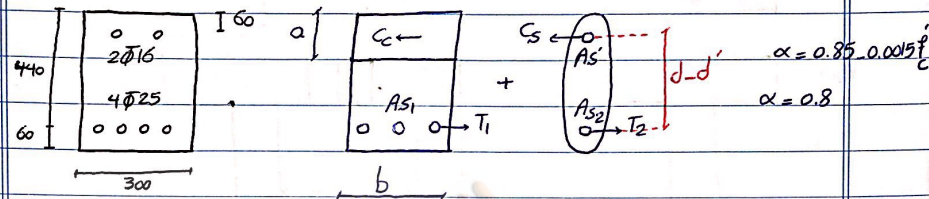 60
440
2Φ16
4Φ25
60
300
a
Cc ←
As1
T1
b
+
Cs
As'
As2
T2
d-d'
α = 0.85-0.0015f'c
α = 0.8